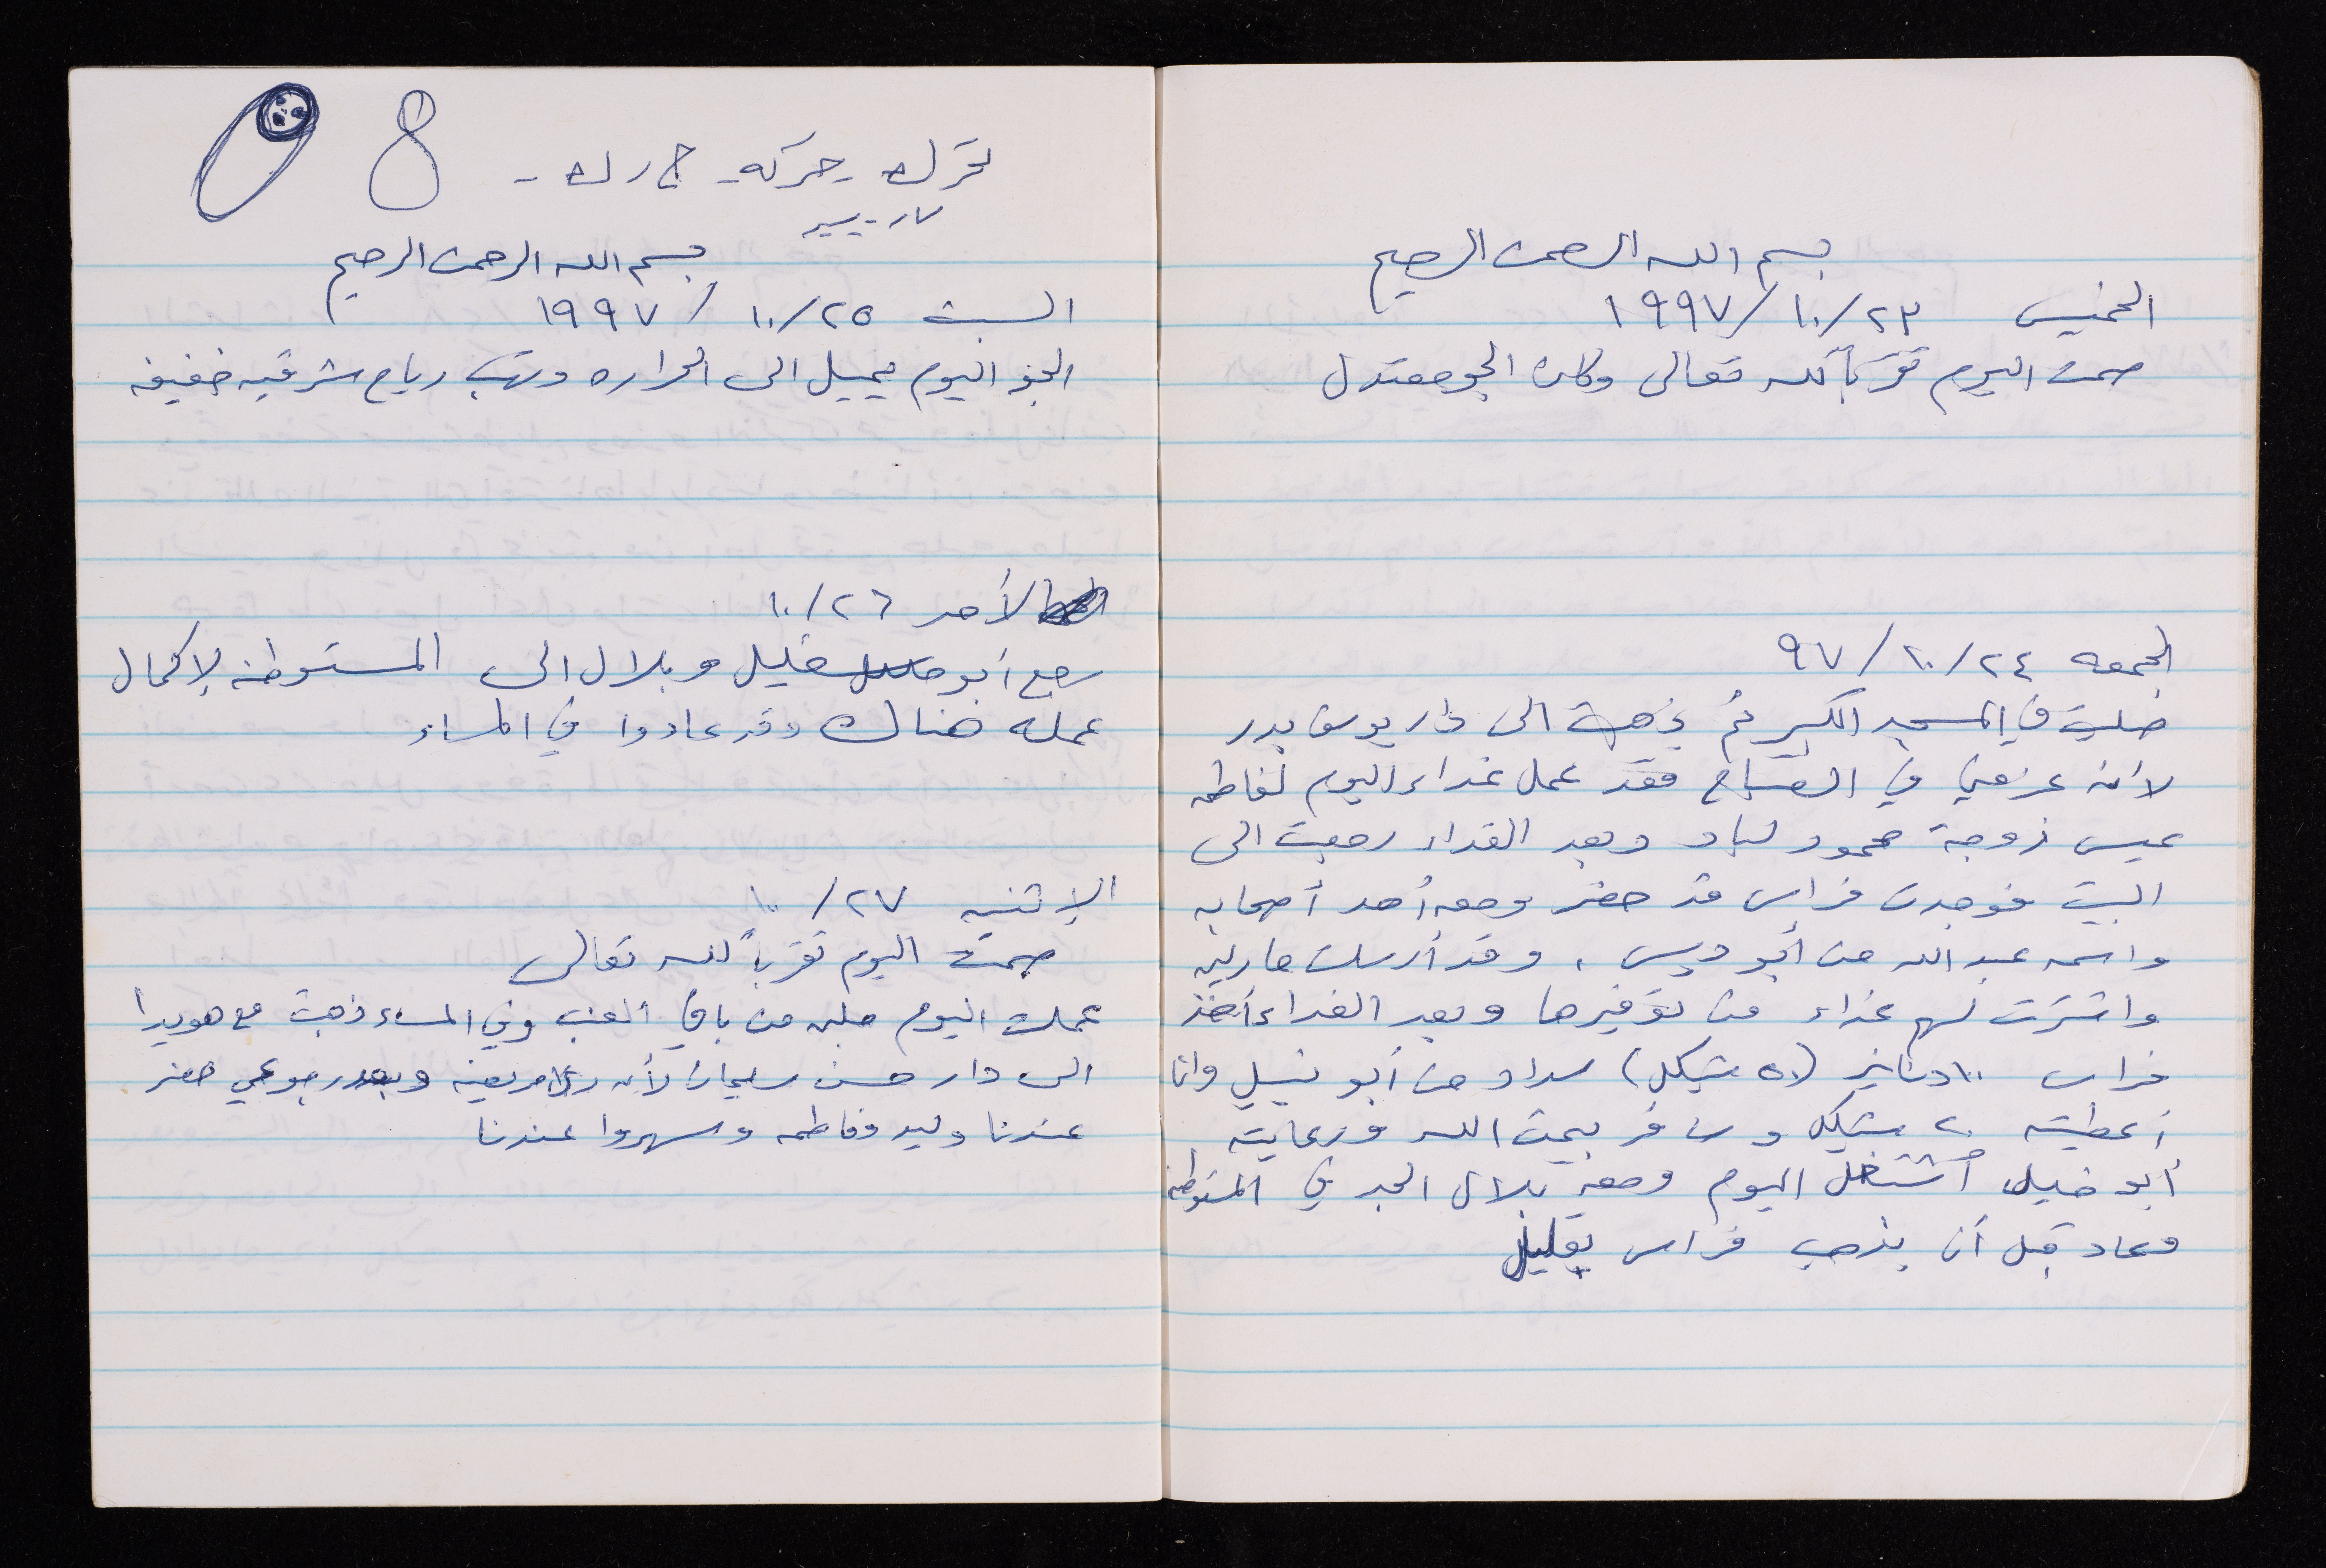 بسم الله الرحمن الرحيم
الخميس ٢٣/١٠/١٩٩٧
صمت اليوم تقرباً لله تعالى وكان الجو معتدل
الجمعه ٢٤/١٠/٩٧
صليت في المسجد الكبير ثم ذهبت الى دار يوسف بدر
لأنه عزمني في الصباح فقد عمل غداء اليوم لفاطمه
عيسى زوجة محمود لباد وبعد الغداء رجعت الى
البيت فوجدت فراس قد حضر ومعه أحد أصحابه
واسمه عبد الله من أبو ديس، وقد أرسلت ماريه
واشترت لهم غداء من توفيرها وبعد الغداء أخذ
فراس ١٠ دنانير (٥٠ شيكل) سداد من أبو نبيل وانا
أعطيته ٢٠ شيكل وسافر بحمت الله ورعايته
أبو خليل اشتغل اليوم ومعه بلال الجد في المستوطنه
وعاد قبل أن يذهب فراس بقليل
تحرك - حركه - ح ر ك -
بسم الله الرحمن الرحيم
السبت ٢٥/١٠/١٩٩٧
الجو اليوم يميل الى الحراره وتهب رياح شرقيه خفيفه
الأحد ٢٦/١٠
رجع أبو خليل وبلال الى المستوطنه لإكمال
عمله هناك وقد عادوا في المساء
الإثنين ٢٧/١٠
صمت اليوم تقرباً لله تعالى
عملت اليوم ملبن من باقي العنب وفي المساء ذهبت مع هويدا
الى دار حسن سليمان لأنه مريض وبعد رجوعي حضر
عندنا وليد وفاطمه وسهروا عندنا